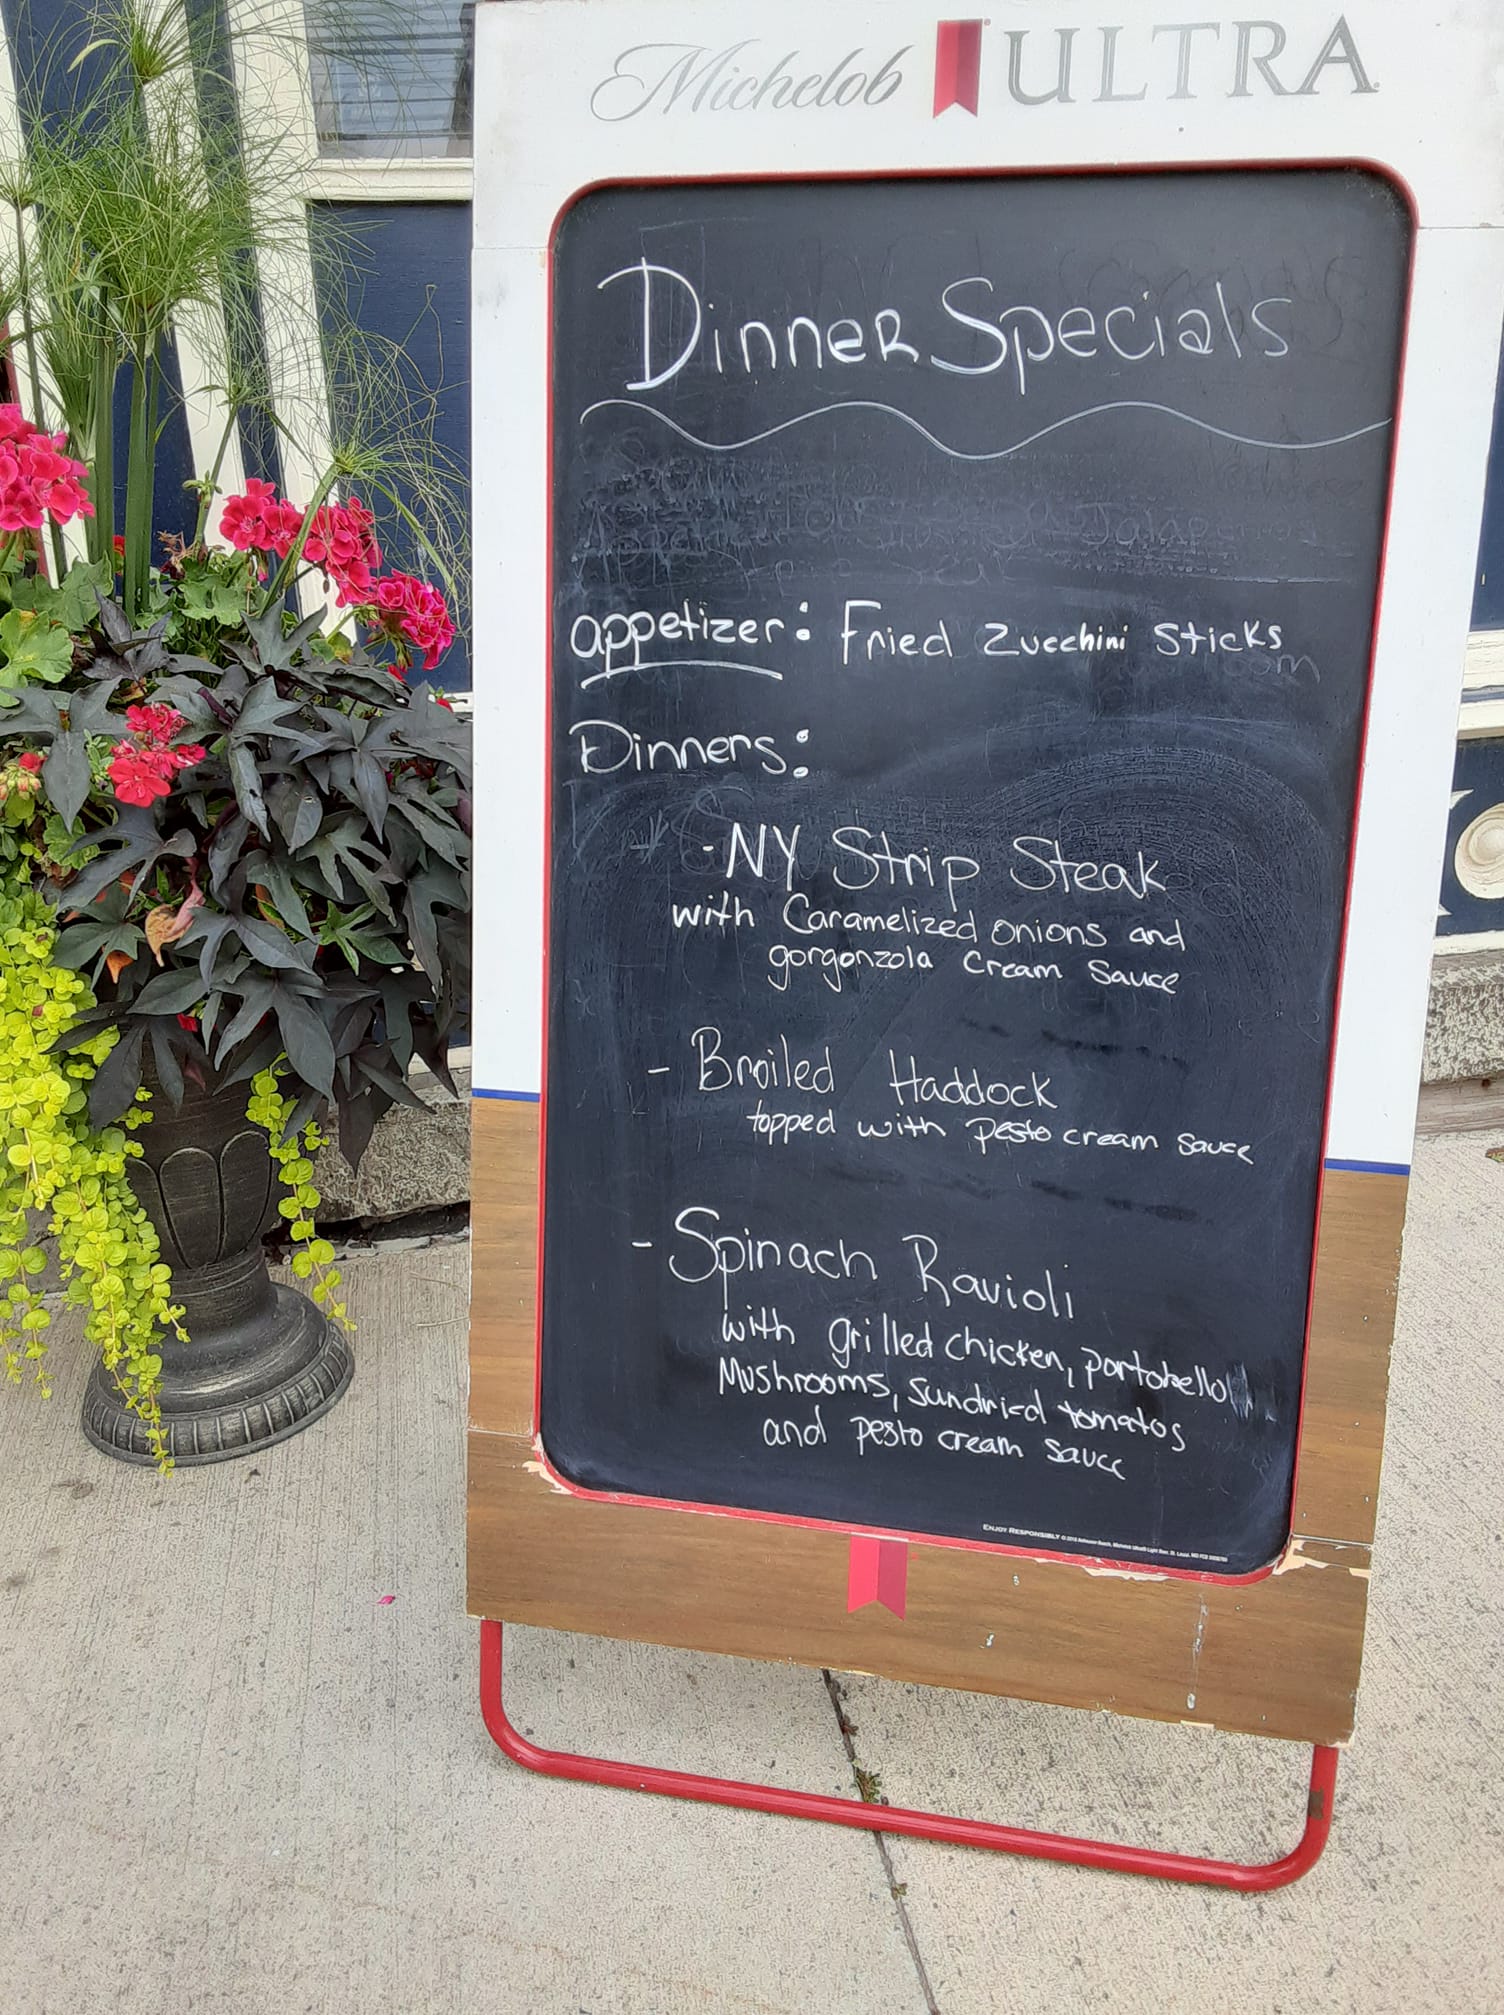 Michelob ULTRA
Dinner Specials
appetizer: Fried Zucchini Sticks
Dinners:
- NY Strip Steak
with Caramelized onions and
gorgonzola cream sauce
- Broiled Haddock
topped with pesto cream sauce
- Spinach Ravioli
with grilled chicken, portobello
Mushrooms, sundried tomatos
and pesto cream sauce
ENJOY RESPONSIBLY